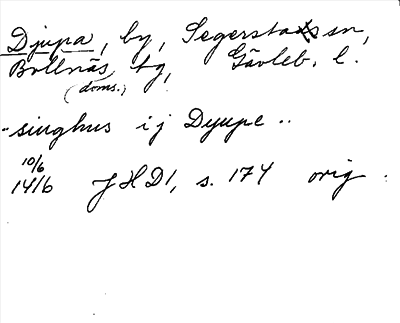 Djupa, by, Segersta sn,
Bollnäs tg, Gävleb. l.
(doms.)
..singhus ij Dyupe..
10/6
1416 JHD1, s. 174 orig.